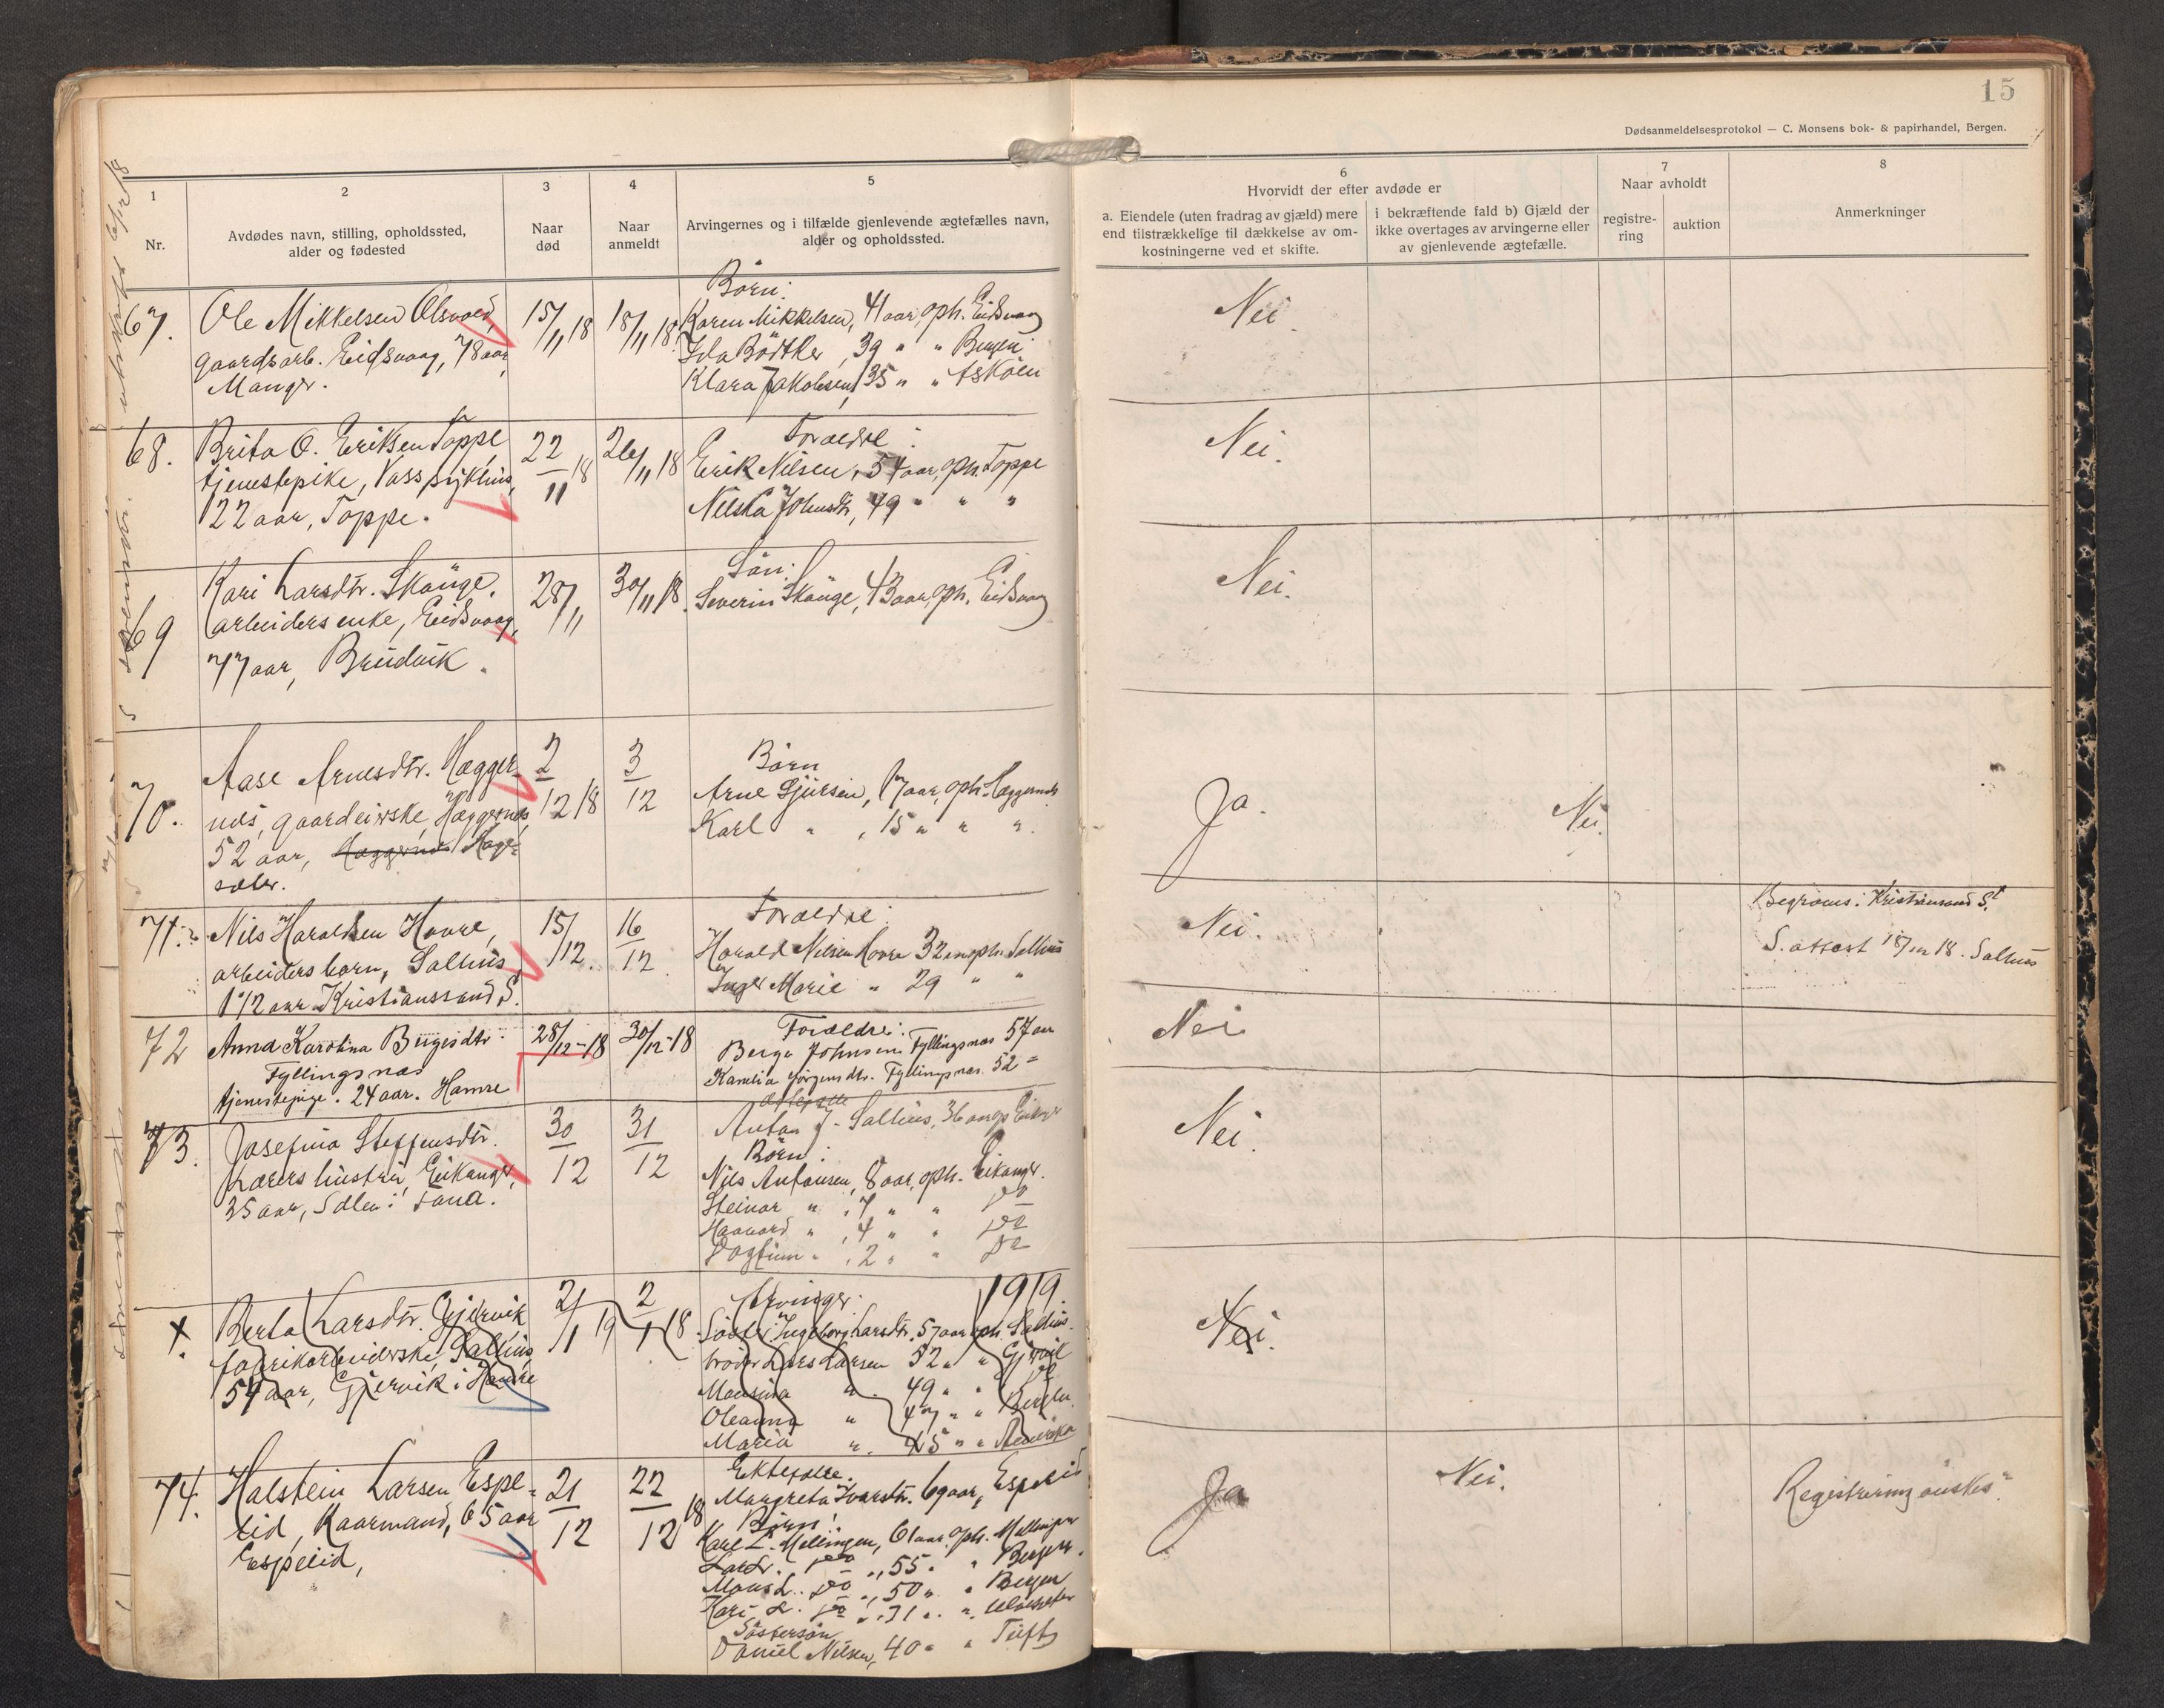 15
Dødsanmeldelsesprotokol — C. Monsens bok- & papirhandel, Bergen.
1
Nr.
2
Avdødes navn, stilling, opholdssted,
alder og fødested
3
Naar
død
4
Naar
anmeldt
5
Arvingernes og i tilfælde gjenlevende ægtefælles navn,
alder og opholdssted.
6
Hvorvidt der efter avdøde er
a. Eiendele (uten fradrag av gjæld) mere
end tilstrækkelige til dækkelse av om-
kostningerne ved et skifte.
i bekræftende fald b) Gjæld der
ikke overtages av arvingerne eller
av gjenlevende ægtefælle.
7
Naar avholdt
registre-
ring
auktion
8
Anmerkninger
67.
Ole Mikkelsen Olsvold,
gaardsarb. Eidsvaag, 78 aar,
Manger.
15/11 18
18/11 18
Börn:
Karen Mikkelsen, 41 aar, oph. Eidsvaag
Ida Bödtker, 39 " " Bergen
Klara Jakobsen, 35 " " Asköen
Nei.
68.
Brita O. Eriksen Toppe,
tjenestepike, Voss sykehus,
22 aar, Toppe.
22/11 18
26/11 18
Foraeldre:
Erik Nilsen, 54 aar, oph. Toppe
Nilska Johnsdtr, 49 " " "
Nei.
69
Kari Larsdtr. Skånge,
arbeiders enke, Eidsvaag,
77 aar, Bruvik.
28/11
30/11 18.
Sön:
Severin Skånge, 43 aar, oph. Eidsvaag
Nei.
70.
Aase Arnesdtr. Hægger-
næs, gaardeierske, Hæggernæs,
52 aar, Hæggernæs Hage-
sæter.
2/12 18
3/12
Börn
Arne Sjursen, 17 aar, oph. Hæggernæs
Karl " , 15 " " ".
Ja.
Nei.
71.
Nils Haraldsen Haare,
arbeiders barn, Salhus,
1 1/2 aar Kristianssand S.
15/12.
16/12
Foraeldre:
Harald Nilsen Hoare 32 aar oph. Salhus
Inger Marie " 29 " "
Nei.
Begraves i Kristiansand S.
S. attest 18/12 18. Salhus
72
Anna Karolina Birgesdtr
Fyllingsnæs
tjenestepige. 24 aar. Hamre
28/12-18
30/12-18
Foraeldre:
Berge Johnsen Fyllingsnæs 57 aar
Kamilia Jörgensdtr. Fyllingsnæs. 52 =
Nei
73.
Josefina Steffensdtr.
Lærers hustru, Eikanger,
35 aar, Sælen i Fana.
30/12
31/12
Anton J. Salhus, 36 aar op Eikanger
Börn:
Nils Antonsen, 8 aar, oph. Eikanger.
Steinar " , 7 " " do
Haavard " , 4 " " do
Dagfinn " , 2 " " do
Nei.
1919.
X.
Berta Larsdtr. Gjervik
fabrikarbeiderske, Salhus,
54 aar, Gjervik i Hamre
2/1 19
2/1 18
Arvinger:
Söster Ingeborg Larsdtr. 57 aar oph. Salhus.
broder Lars Larsen 52 " " Gjervik
Monsina " . 49 " " do
Oleanna " 47 " " Bergen.
Maria " . 45 " " Amerika
Nei.
74.
Halstein Larsen Espe-
lid, Kaarmand, 65 aar
Espelid,
21/12
22/12 18
Ektefælle.
Margreta Ivarsdtr. 69 aar, Espelid
Börn:
Karl L. Mellingen, 61 aar. oph. Mellingen
Lars L. do , 55 " " Bergen.
Mons L. do , 50 " " Bergen
Kari L. do , 71 " "
Söstersön
Daniel Nilsen, 40 " " Tuft
Ja
Nei.
Registrering önskes.